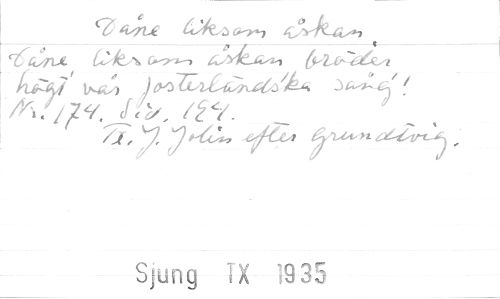 Dåne liksom åskan
Dåne liksom åskan bröder
högt vår fosterländska sång!
Nr. 174. Sid. 194.
Tx. J. Jolin efter Grundtvig.
Sjung TX 1935